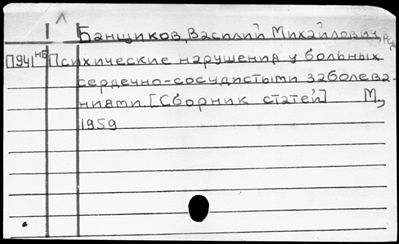 Банщиков, Василий Михайлович,
П941 НБ Психические нарушения у больных
сердечно-сосудистыми заболева-
ниями. [Сборник статей] М.,
1959